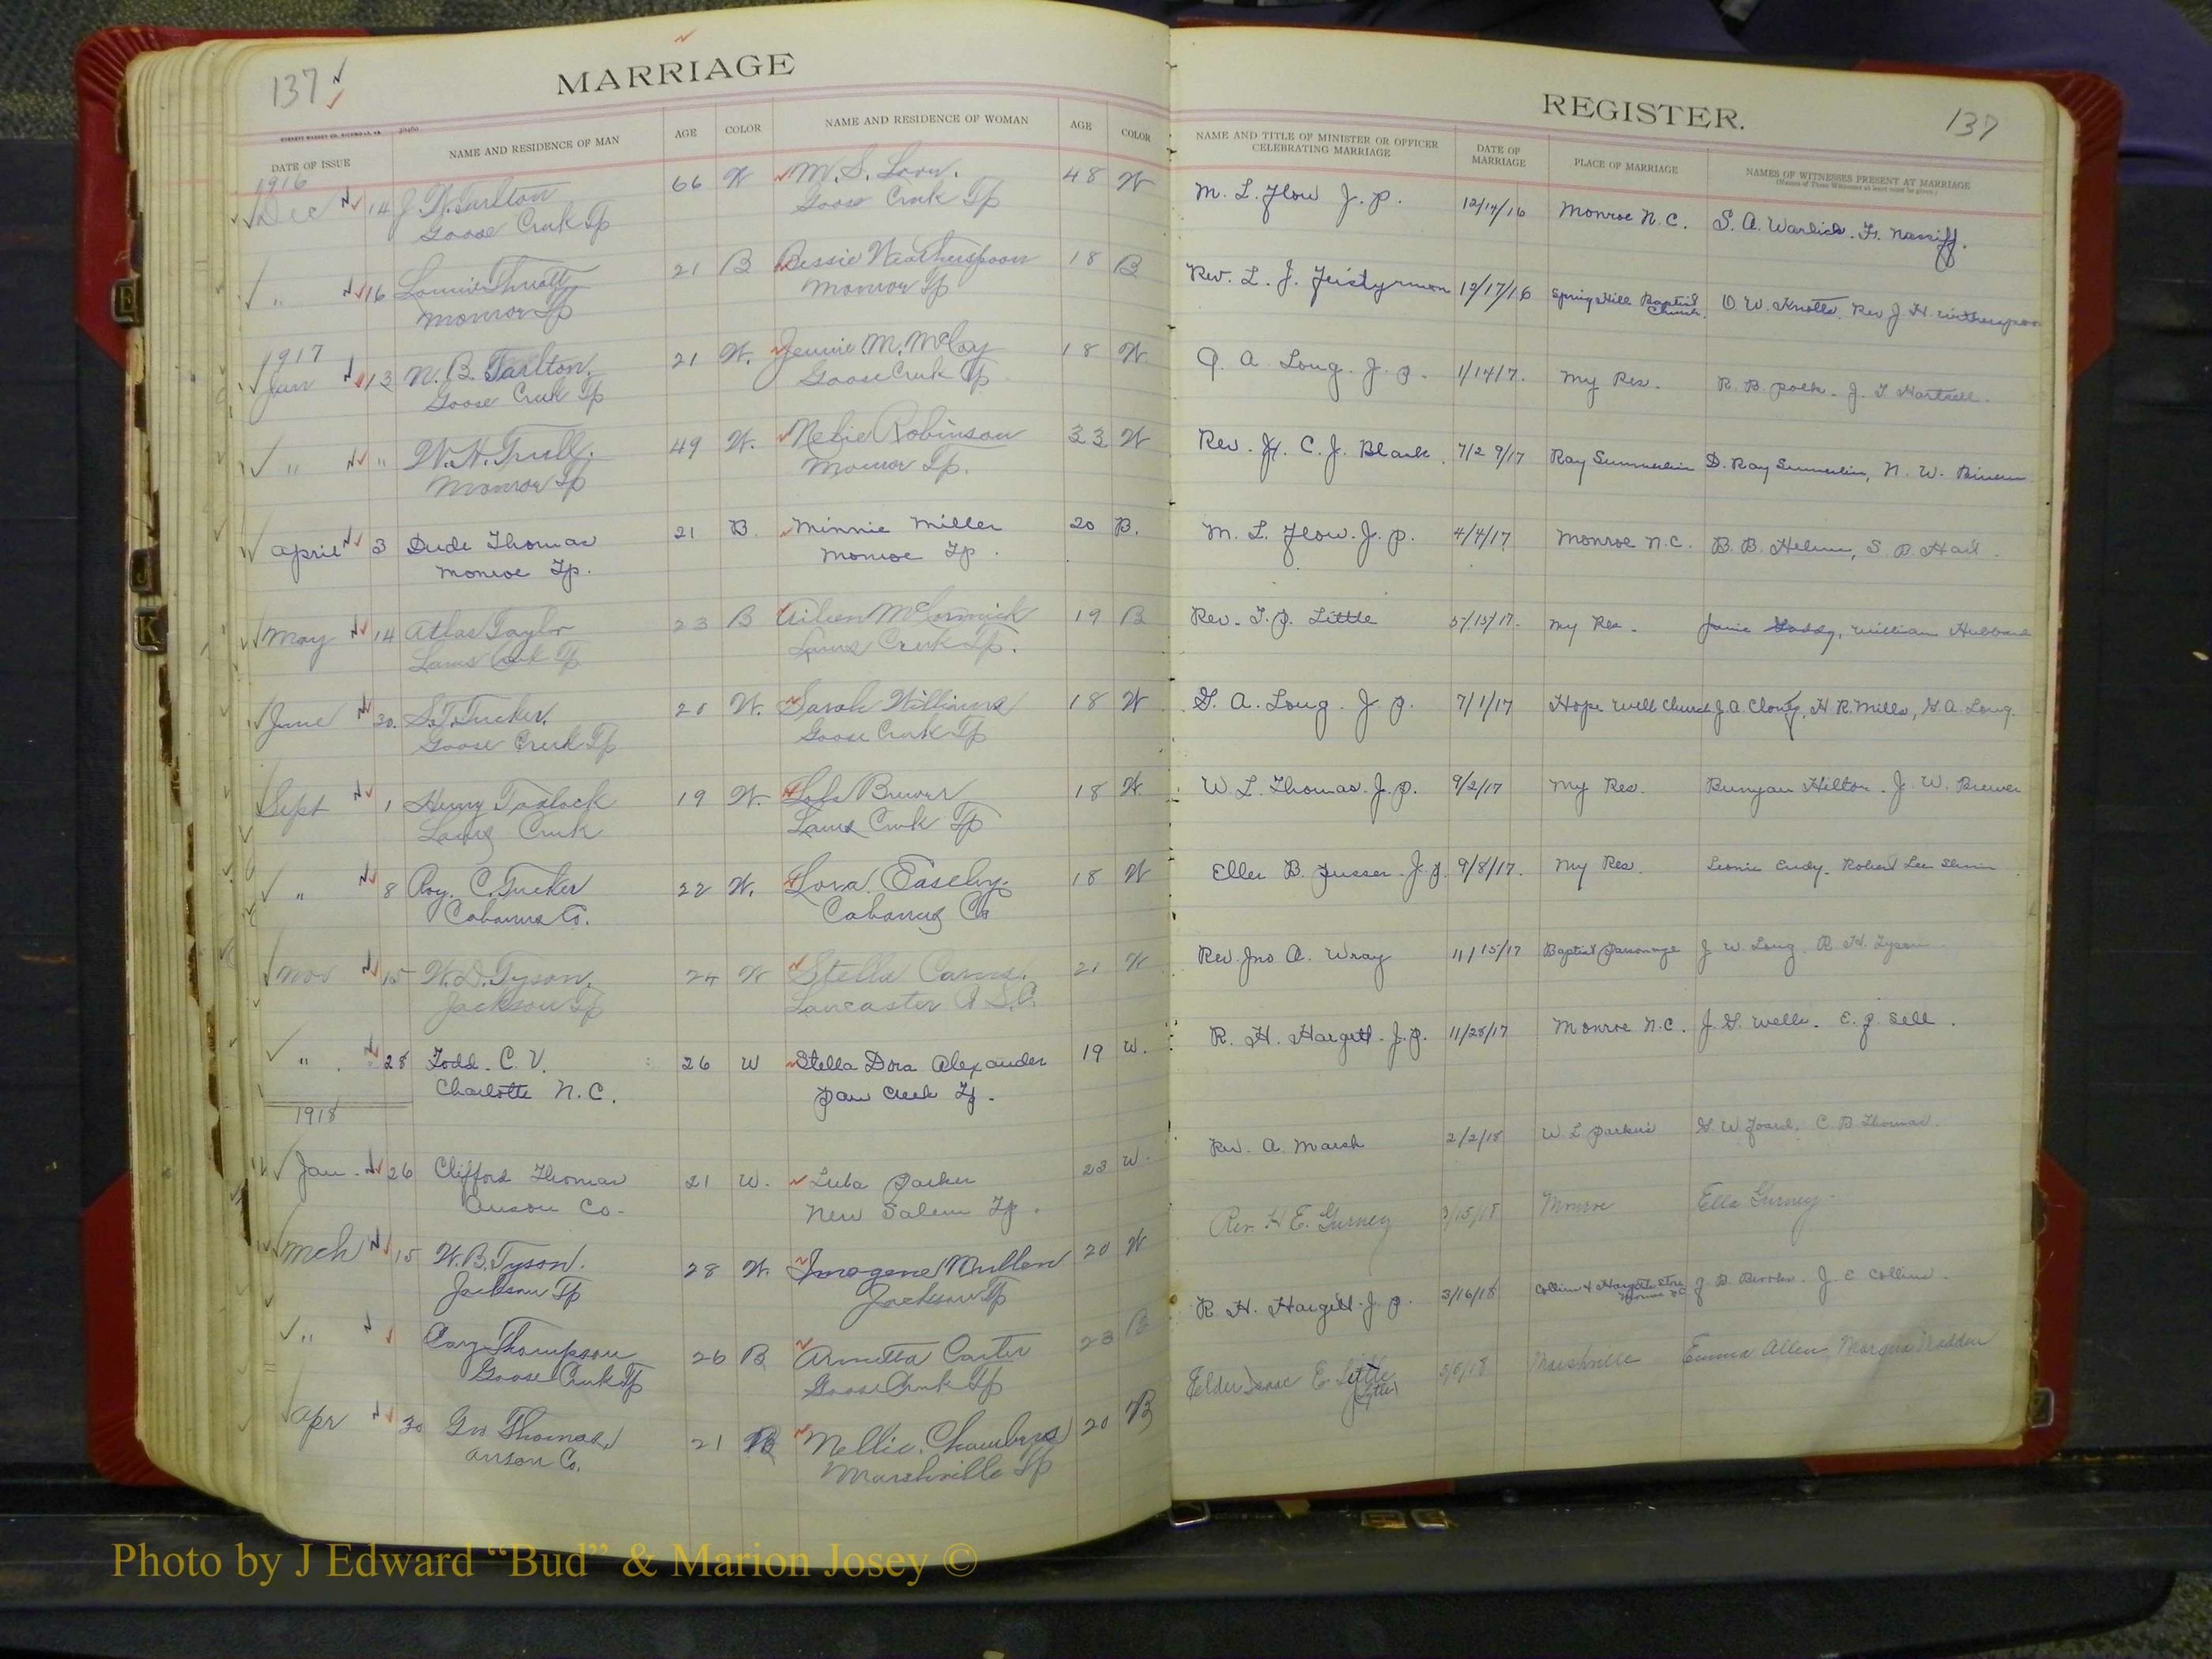 137
MARRIAGE
DATE OF ISSUE
NAME AND RESIDENCE OF MAN
AGE
COLOR
NAME AND RESIDENCE OF WOMAN
AGE
COLOR
1916
Dec 14 J. W. Tarlton 66 W M. S. 48 W
Goose Creek Tp Goose Creek Tp
" 16 Lonnie Threatt 21 B Bessie Weatherspoon 18 B
Monroe Tp Monroe Tp
1917
Jan 13 N. B. Tarlton. 21 W. Jennie M. McCoy 18 W
Goose Creek Tp Goose Creek Tp
" " W. H. Trull. 49 W. Robinson 33 W
Monroe Tp Monroe Tp.
April 3 Dude Thomas 21 B. Minnie Miller 20 B.
Monroe Tp. Monroe Tp.
May 14 Atlas Taylor 23 B Aileen McCormick 19 B
Lanes Creek Tp Lanes Creek Tp.
June 30. S. T. Tucker. W. Sarah Williams 18 W
Goose Creek Tp Goose Creek Tp
Sept 1 Henry Tadlock 19 W. Brewer 18 W.
Lanes Creek Lanes Creek Tp
" 8 Roy. C. Tucker 22 W. Lora 18 W
Cabarrus Co. Cabarrus Co
Nov 15 W. D. Tyson. 24 W Stella Carnes. 21 W
Jackson Tp Lancaster S.C.
" 28 Todd. C. V. 26 W Stella Dora Alexander 19 W.
Charlotte N.C. Paw Creek Tp.
1918
Jan. 26 Clifford Thomas 21 W. Parker 23 W.
Anson Co. New Salem Tp.
Mch 15 W. B. Tyson. 28 W. Imogene Mullen 20 W
Jackson Tp Jackson Tp
" Thompson 26 B Armetta Carter 23 B
Goose Creek Tp Goose Creek Tp
Apr 30 Geo Thomas 21 B Mellie Chambers 20 B
Anson Co. Marshville Tp
REGISTER.
137
NAME AND TITLE OF MINISTER OR OFFICER
CELEBRATING MARRIAGE
DATE OF
MARRIAGE
PLACE OF MARRIAGE
NAMES OF WITNESSES PRESENT AT MARRIAGE
(Names of Three Witnesses at least must be given.)
M. L. Flow J. P. 12/14/16 Monroe N.C. S. A. Warlick.
Rev. L. J. 12/17/16 Spring Hill Baptist Church. O. W. Knotts. Rev J. H. Witherspoon
A. Long. J. P. 1/14/17. My Res. R. B. Polk. J. T. Hartsell.
Rev. C. J. Black. 7/29/17 Ray Summerlin D. Ray Summerlin, N. W.
M. L. Flow. J. P. 4/4/17 Monroe N.C. B. B. Helms, S. B. Hart.
Rev. T. P. Little 5/15/17. My Res. William Hubbard
G. A. Long. J. P. 7/1/17 Hope Well Church J. A. Clontz, H R. Mills, G. A. Long.
W. L. Thomas. J. P. 9/2/17 My Res. Bunyan Hilton. J. W. Brewer
B. J. P. 9/8/17. My Res. Eudy. Robert Lee
Rev. Jno A. Wray 11/15/17 Baptist Parsonage J. W. Long R. H. Tyson
R. H. Hargett. J. P. 11/28/17 Monroe N.C. J. G. Wells. E. J. Sell.
Rev. A. Marsh 2/2/18 W. L. Parker's G. W. C. B. Thomas.
Rev. H. E. Gurney 3/15/18 Monroe Ella Gurney.
R. H. Hargett. J. P. 3/16/18 Collins & Hargett Store Monroe NC J. B. J. E. Collins.
Elder Isaac E. Little (Little) Marshville Emma Allen,
Photo by J Edward “Bud” & Marion Josey ©